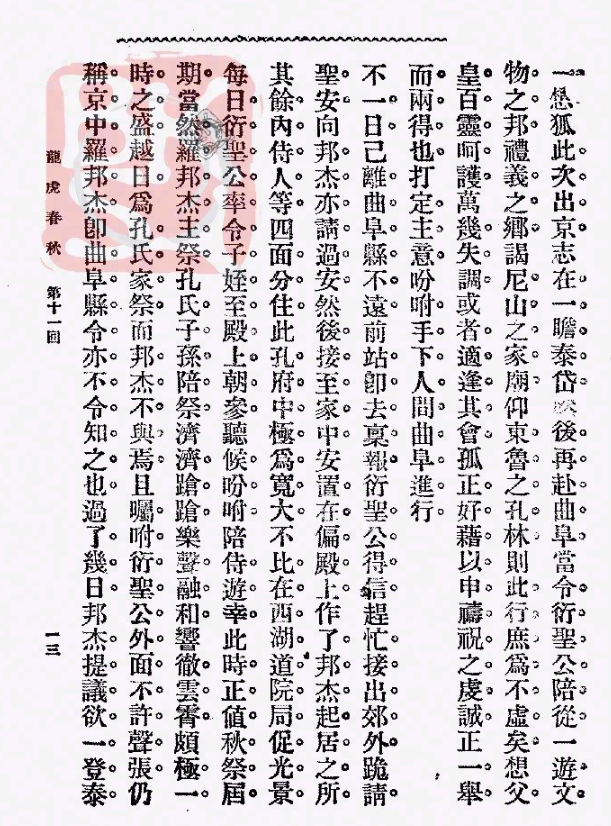 一想狐此次出京志在一瞻泰岱然後再赴曲阜當令衍聖公陪從一遊文
物之邦禮義之鄉謁尼山之家廟仰東魯之孔林則此行庶爲不虛矣想父
皇百靈呵護萬幾失調或者適逢其會孤正好藉以申禱祝之虔誠正一舉
而兩得也打定主意吩咐手下人間曲阜進行
不一日己離曲阜縣不遠前站卽去稟報衍聖公得信趕忙接出郊外跪請
聖安向邦杰亦請過安然後接至家中安置在偏殿上作了邦杰起居之所
其餘內侍人等四面分住此孔府中極爲寬大不比在西湖道院局促光景
每日衍聖公率令子姪至殿上朝參聽候吩咐陪侍遊幸此時正值秋祭屆
期當然羅邦杰主祭孔氏子孫陪祭濟濟蹌蹌樂聲融和響徹雲霄頗極一
時之盛越日爲孔氏家祭而邦杰不與焉且囑咐衍聖公外面不許聲張仍
稱京中羅邦杰卽曲阜縣令亦不令知之也過了幾日邦杰提議欲一登泰
龍虎春秋 第十一回 一三